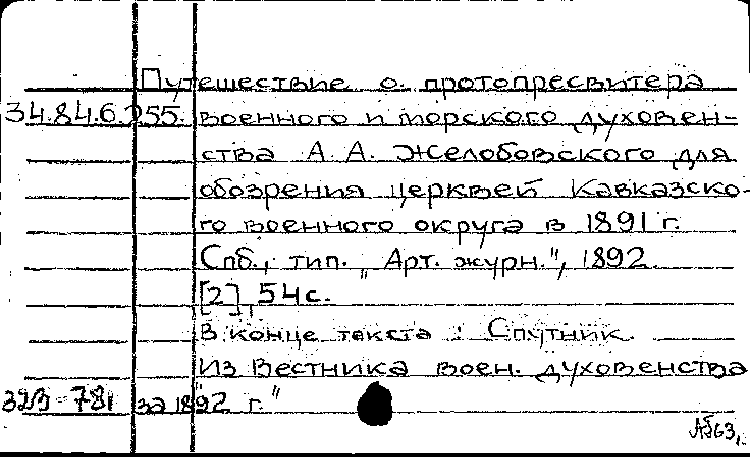 Путешествие о. протопресвитера
34.84.6.255. военного и морского духовен-
ства А. А. Желобовского для
обозрения церквей Кавказско-
го военного округа в 1891 г.
Спб., тип. „Арт. журн.", 1892.
[2], 54 с.
В конце текста: Спутник.
Из Вестника воен. духовенства
за 1892 г."